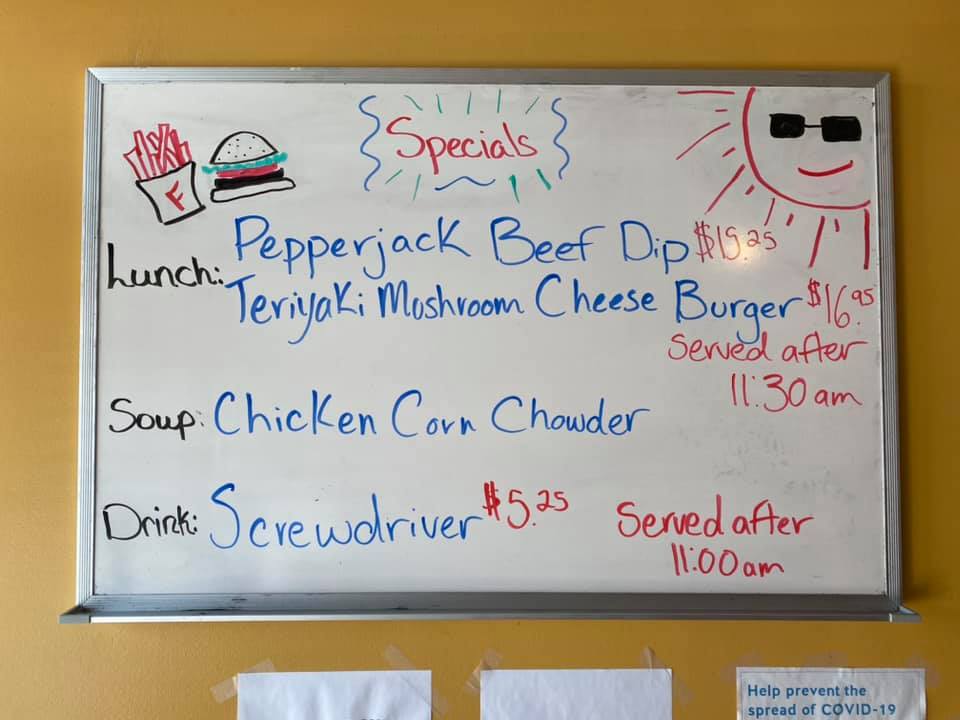 Specials
F
Lunch: Pepperjack Beef Dip $15.25
Teriyaki Moshroom Cheese Burger $16.95
Served after
11:30 am
Soup: Chicken Corn Chowder
Drink: Screwdriver $5.25
Served after
11:00 am
Help prevent the
spread of COVID-19